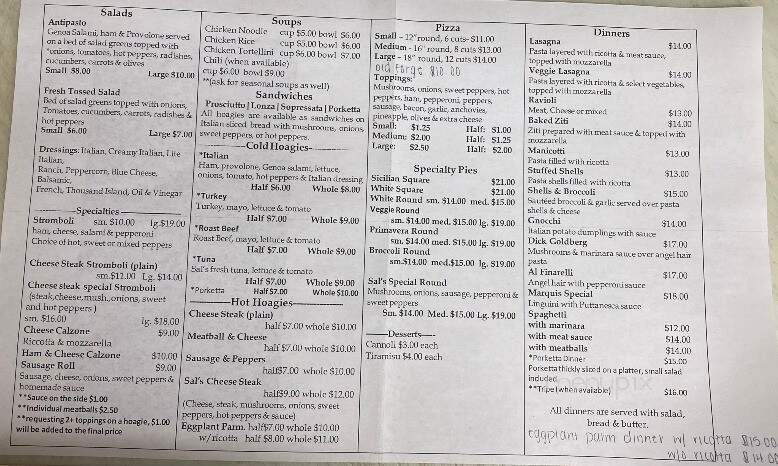 Salads
Antipasto
Genoa Salami, ham & Provolone served
on a bed of salad greens topped with
*onions, tomatoes, hot peppers, radishes,
cucumbers, carrots & olives
Small $8.00 Large $10.00
Fresh Tossed Salad
Bed of salad greens topped with onions,
Tomatoes, cucumbers, carrots, radishes &
hot peppers
Small $6.00 Large $7.00
Dressings: Italian, Creamy Italian, Lite
Italian,
Ranch, Peppercorn, Blue Cheese,
Balsamic,
French, Thousand Island, Oil & Vinegar
Specialties
Stromboli sm. $10.00 lg.$19.00
ham, cheese, salami & pepperoni
Choice of hot, sweet or mixed peppers
Cheese Steak Stromboli (plain)
sm.$11.00 Lg. $14.00
Cheese steak special Stromboli
(steak,cheese,mush,onions, sweet
and hot peppers )
sm. $16.00 lg. $18.00
Cheese Calzone $9.00
Riccotta & mozzarella
Ham & Cheese Calzone $10.00
Sausage Roll $9.00
Sausage, cheese, onions, sweet peppers &
homemade sauce
**Sauce on the side $1.00
**Individual meatballs $2.50
**requesting 2+ toppings on a hoagie, $1.00
will be added to the final price
Soups
Chicken Noodle cup $5.00 bowl $6.00
Chicken Rice cup $5.00 bowl $6.00
Chicken Tortellini cup $6.00 bowl $7.00
Chili (when available)
cup $6.00 bowl $9.00
**(ask for seasonal soups as well)
Sandwiches
Prosciutto|Lonza|Sopressata|Porketta
All hoagies are available as sandwiches on
Italian sliced bread with mushrooms, onions,
sweet peppers, or hot peppers.
Cold Hoagies
*Italian
Ham, provolone, Genoa salami, lettuce,
onions, tomato, hot peppers & Italian dressing
Half $6.00 Whole $8.00
*Turkey
Turkey, mayo, lettuce & tomato
Half $7.00 Whole $9.00
*Roast Beef
Roast Beef, mayo, lettuce & tomato
Half $7.00 Whole $9.00
*Tuna
Sal's fresh tuna, lettuce & tomato
Half $7.00 Whole $9.00
*Porketta Half $7.00 Whole $10.00
Hot Hoagies
Cheese Steak (plain)
half $7.00 whole $10.00
Meatball & Cheese
half $7.00 whole $10.00
Sausage & Peppers
half$7.00 whole $10.00
Sal's Cheese Steak
half$9.00 whole $12.00
(Cheese, steak, mushrooms, onions, sweet
peppers, hot peppers & sauce)
Eggplant Parm. half$7.00 whole $10.00
w/ricotta half $8.00 whole $11.00
Pizza
Small - 12"round, 6 cuts- $11.00
Medium - 16" round, 8 cuts $13.00
Large - 18" round, 12 cuts $14.00
old forge $10.00
Toppings:
Mushrooms, onions, sweet peppers, hot
peppers, ham, pepperoni, peppers,
sausage, bacon, garlic, anchovies,
pineapple, olives & extra cheese
Small: $1.25 Half: $1.00
Medium: $2.00 Half: $1.25
Large: $2.50 Half: $2.00
Specialty Pies
Sicilian Square $21.00
White Square $21.00
White Round sm. $14.00 med. $15.00
Veggie Round
sm. $14.00 med. $15.00 lg. $19.00
Primavera Round
sm. $14.00 med. $15.00 lg. $19.00
Broccoli Round
sm.$14.00 med.$15.00 lg. $19.00
Sal's Special Round
Mushrooms, onions, sausage, pepperoni &
sweet peppers
Sm. $14.00 Med. $15.00 Lg. $19.00
Desserts
Cannoli $3.00 each
Tiramisu $4.00 each
Dinners
Lasagna $14.00
Pasta layered with ricotta & meat sauce,
topped with mozzarella
Veggie Lasagna $14.00
Pasta layered with ricotta & select vegetables,
topped with mozzarella
Ravioli
Meat, Cheese or mixed $13.00
Baked Ziti $14.00
Ziti prepared with meat sauce & topped with
mozzarella
Manicotti $13.00
Pasta filled with ricotta
Stuffed Shells $13.00
Pasta shells filled with ricotta
Shells & Broccoli $15.00
Sautéed broccoli & garlic served over pasta
shells & cheese
Gnocchi $14.00
Italian potato dumplings with sauce
Dick Goldberg $17.00
Mushrooms & marinara sauce over angel hair
pasta
Al Finarelli $17.00
Angel hair with pepperoni sauce
Marquis Special $18.00
Linguini with Puttanesca sauce
Spaghetti
with marinara $12.00
with meat sauce $14.00
with meatballs $14.00
*Porketta Dinner $15.00
Porketta thickly sliced on a platter, small salad
included
**Tripe (when available) $16.00
All dinners are served with salad,
bread & butter.
eggplant parm dinner w/ ricotta $15.00
w/o ricotta $14.00